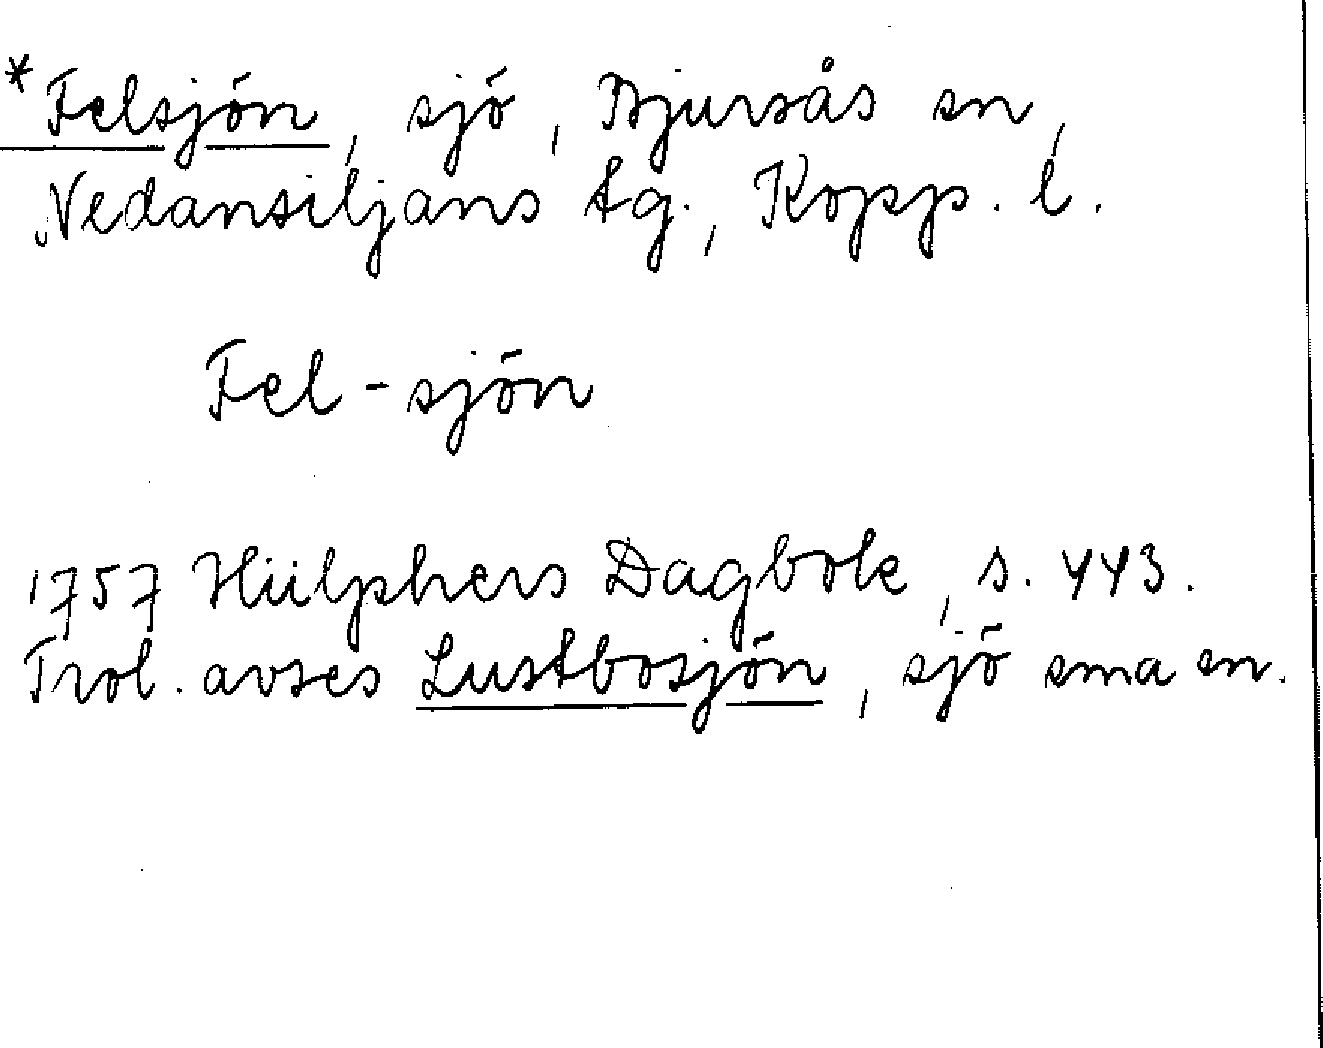 *Felsjön, sjö, Bjursås sn,
Nedansiljans tg., Kopp. l.
Fel-sjön
1757 Hülphers Dagbok, s. 443.
Trol. avses Lustbosjön, sjö sma sn.